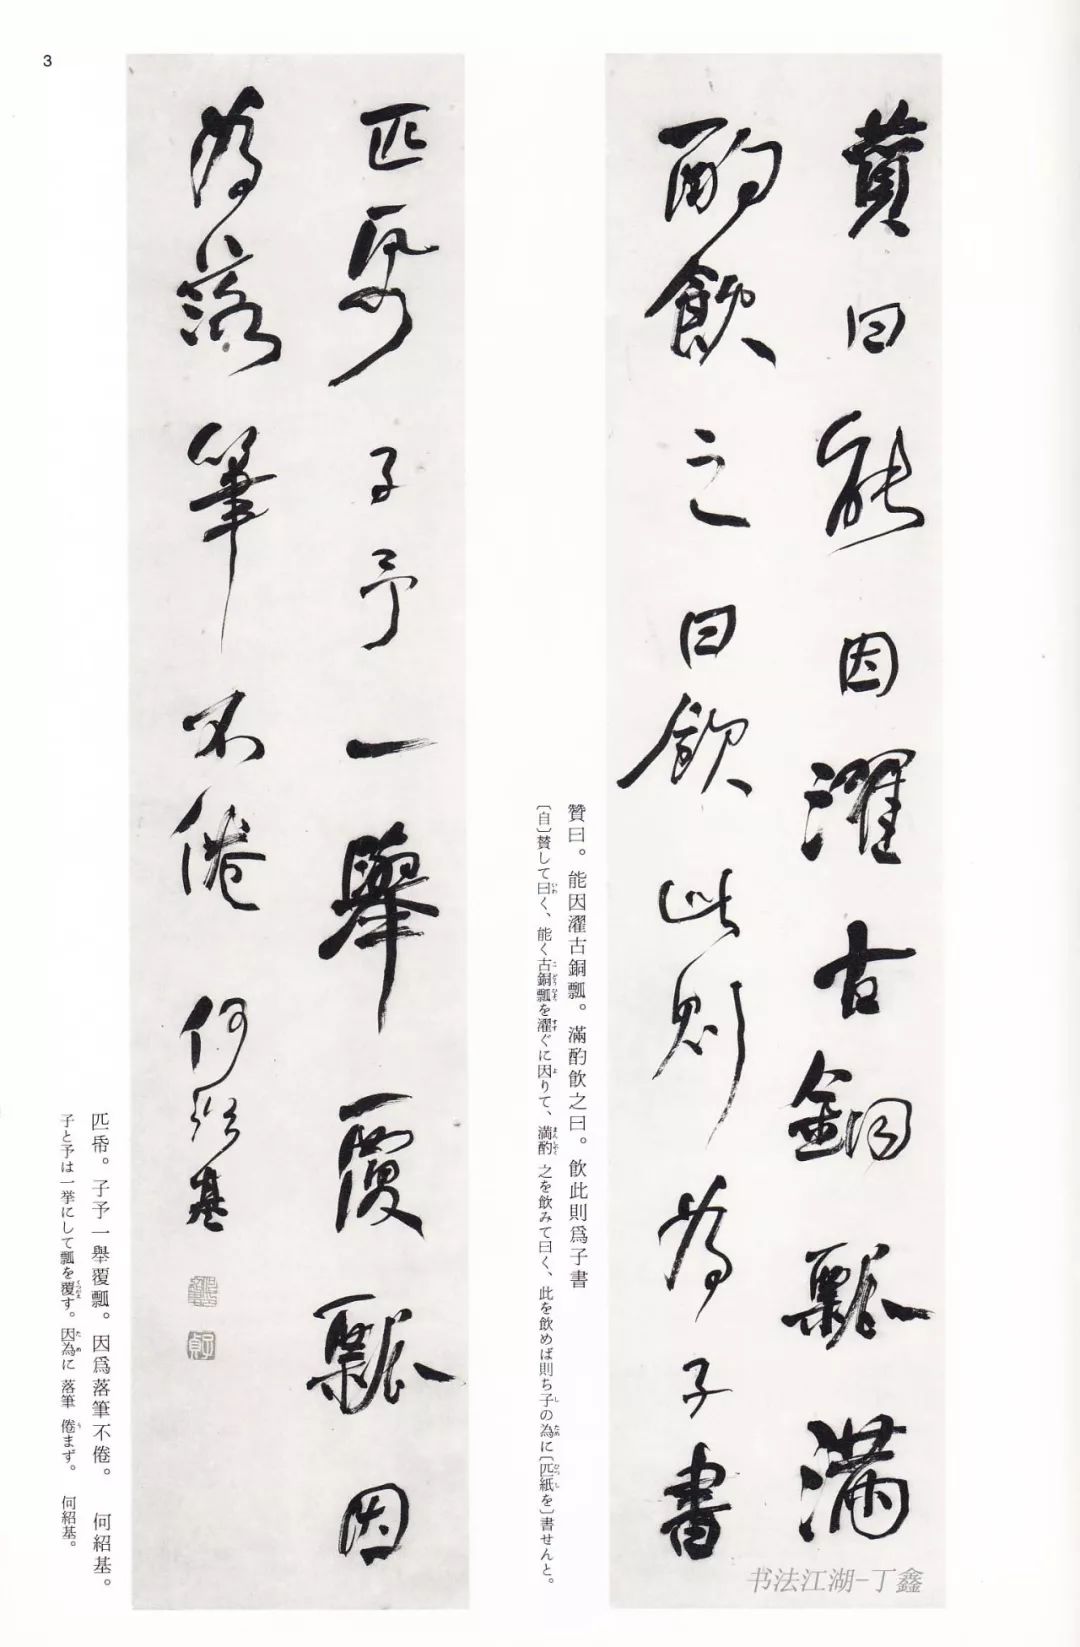 3
贊曰能因濯古銅瓢滿
酌飲之曰飲此則為子書
贊曰。能因濯古銅瓢。滿酌飲之曰。飲此則爲子書
〔自〕賛して曰く、能く古銅瓢を濯ぐに因りて、満酌 之を飲みて曰く、此を飲めば則ち子の為に〔匹紙を〕書せんと。
匹帋子予一舉覆瓢因
為落筆不倦 何紹基
匹帋。子予一舉覆瓢。因爲落筆不倦。 何紹基。
子と予は一挙にして瓢を覆す。因為に 落筆 倦まず。 何紹基。
书法江湖-丁鑫